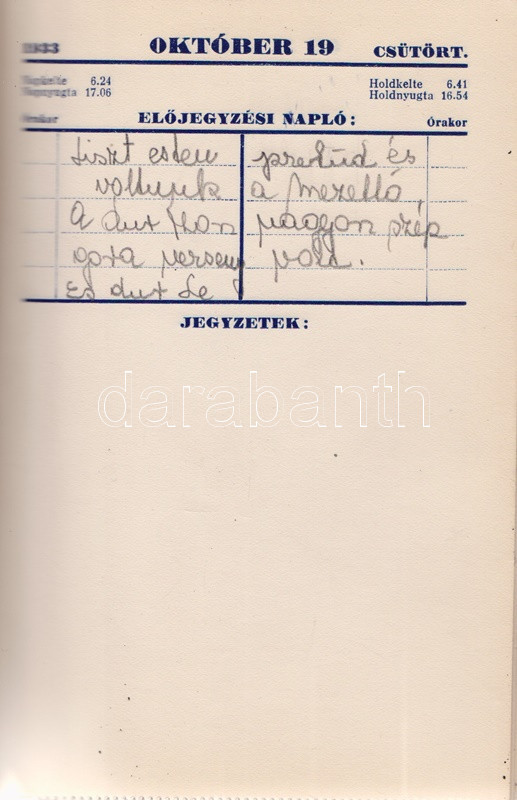 1933 OKTÓBER 19 CSÜTÖRT.
Napkelte 6.24
Napnyugta 17.06
Holdkelte 6.41
Holdnyugta 16.54
Órakor ELŐJEGYZÉSI NAPLÓ: Órakor
Liszt esten
voltunk
A dur Zon
gora verseny
Es dur Le
prelűd és
a Mezellő,
nagyon szép
volt.
JEGYZETEK:
darabanth